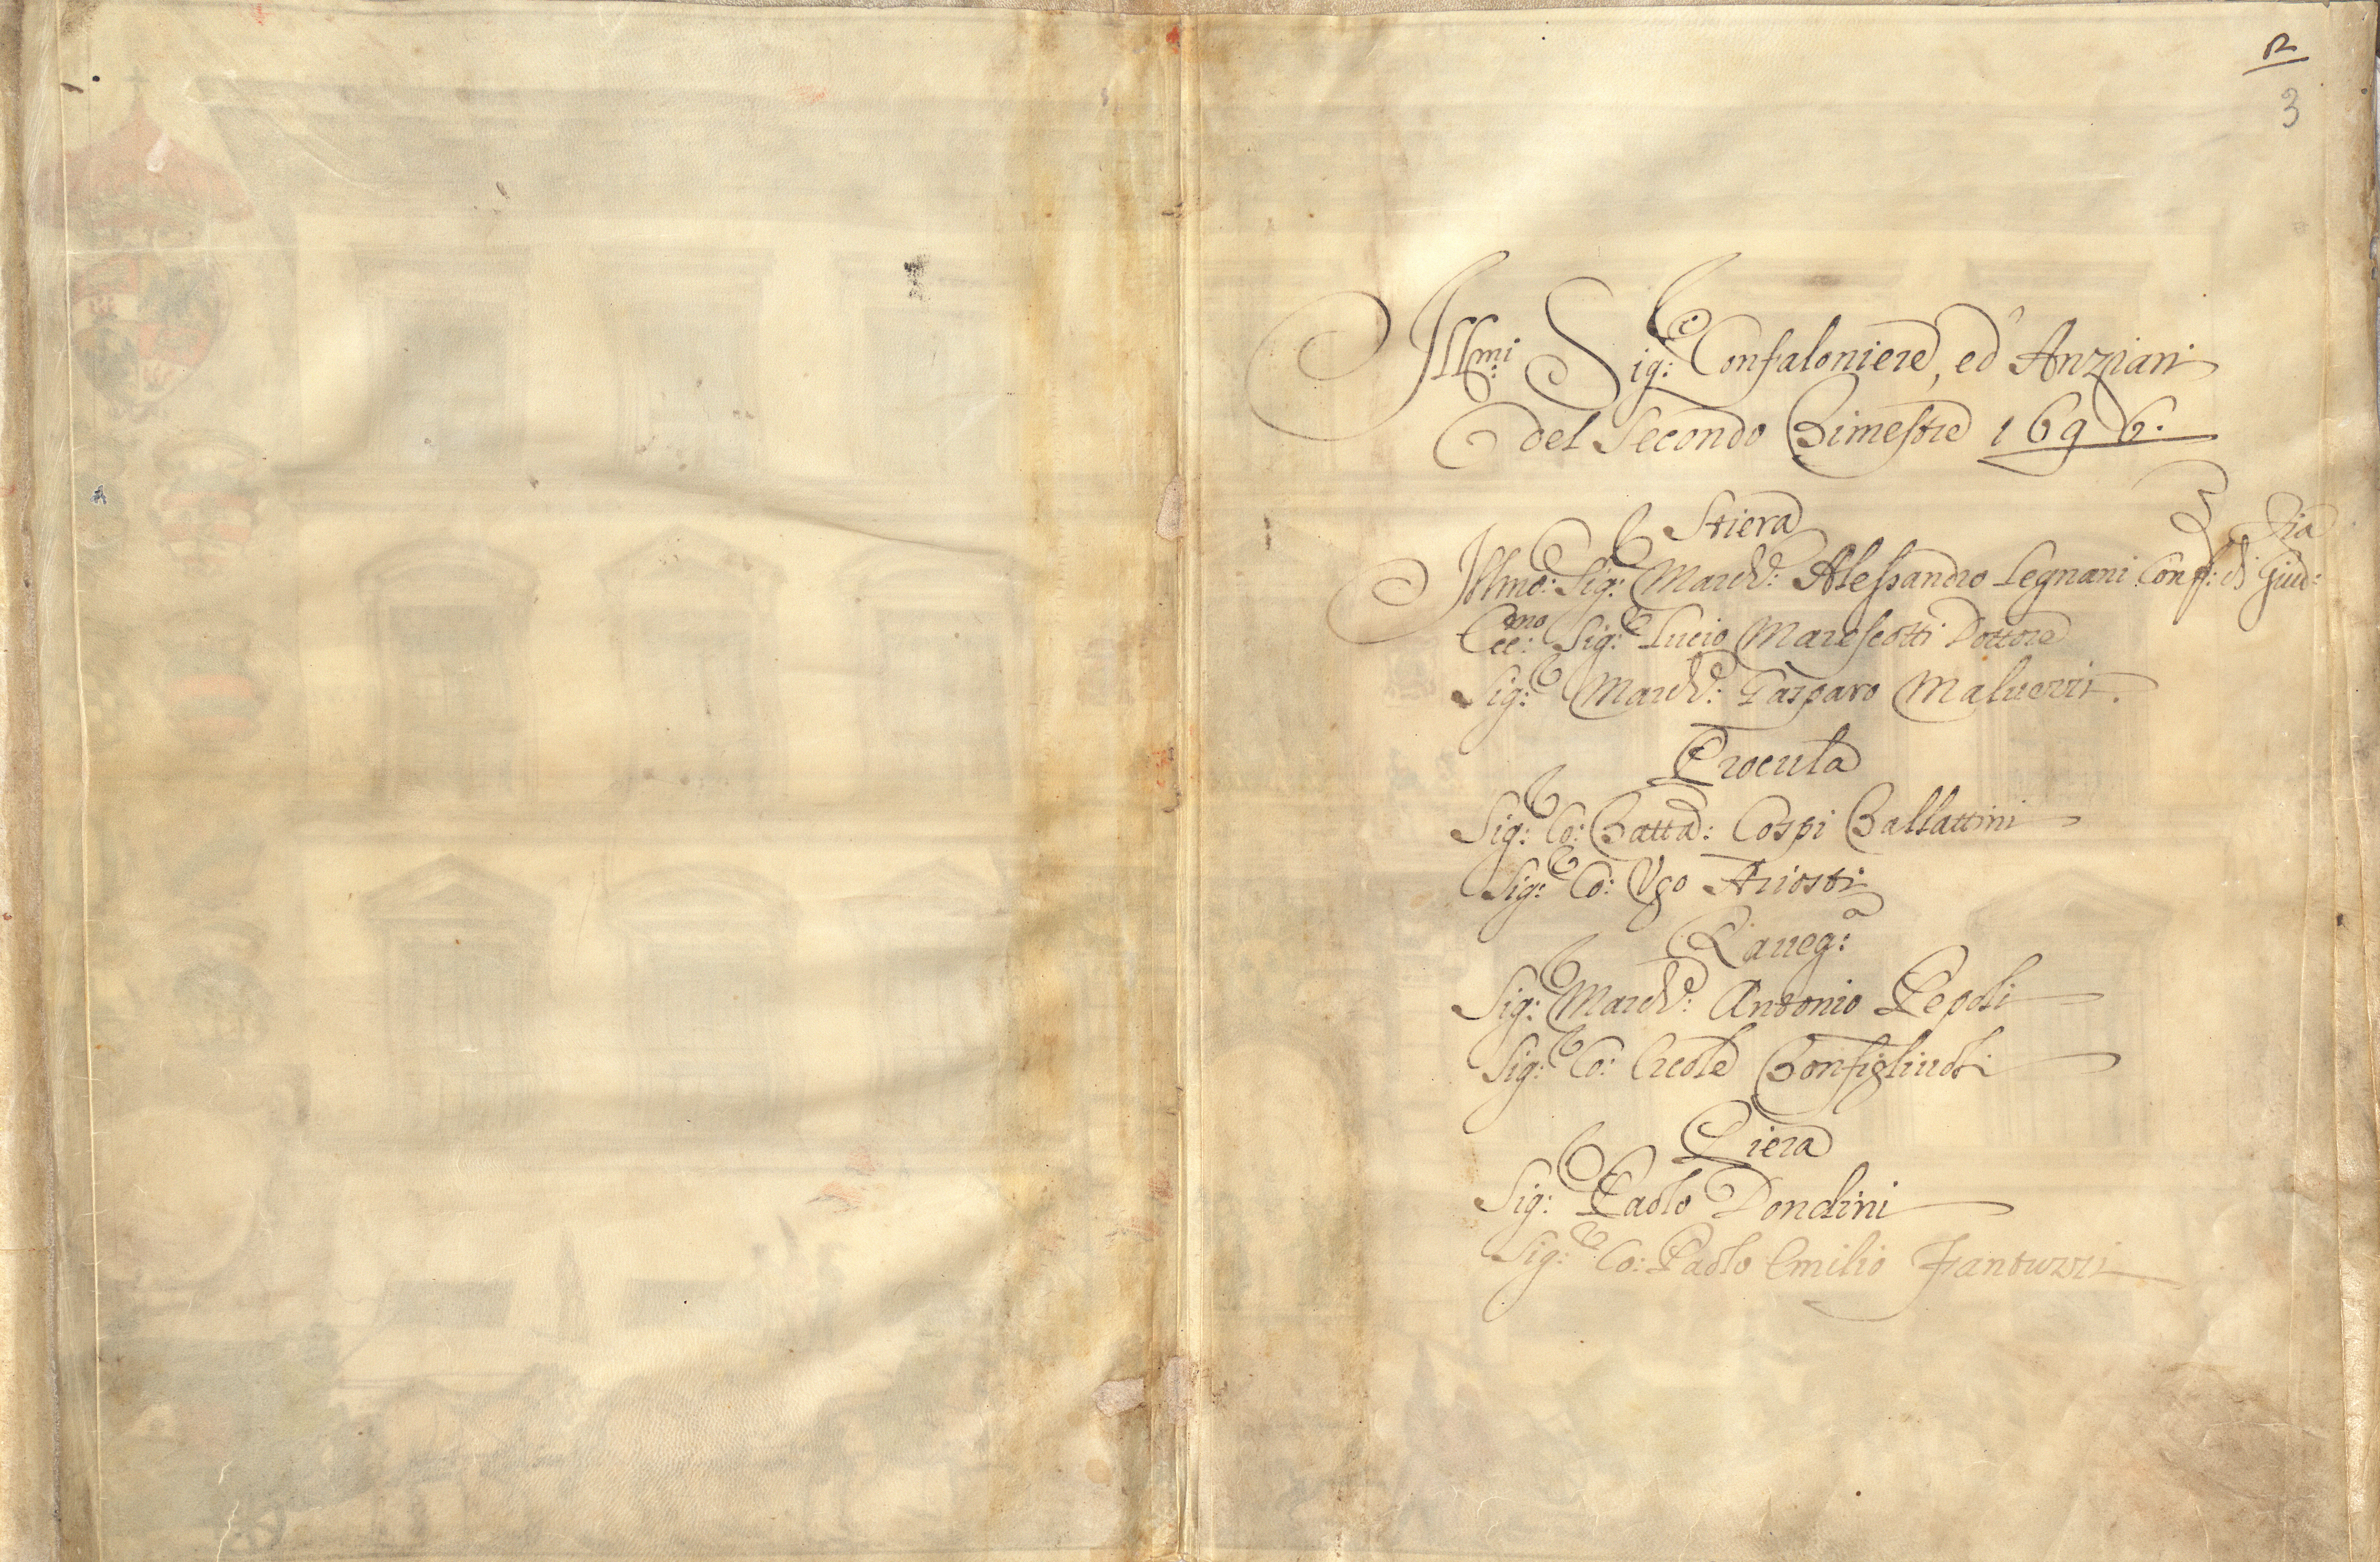 R
3
Ill.mi Sig.i Confaloniere, ed Anziani
del Secondo Bimestre 1696.
Stiera
Ill.mo: Sig.r March.e: Alessandro Legnani Conf.: di Giud:zia
Ecc.mo: Sig.r Lucio Marescotti Dottore
Sig.r March.e: Gasparo Malvezzi.
Procula
Sig.r Co: Batta: Cospi Ballattini
Sig.r Co: Ugo Ariosti
Raveg:a
Sig.r March.e: Antonio Pepoli
Sig.r Co: Ercole Bonfigliuoli
Piera
Sig.r Paolo Dondini
Sig.r Co: Paolo Emilio Fantuzzi